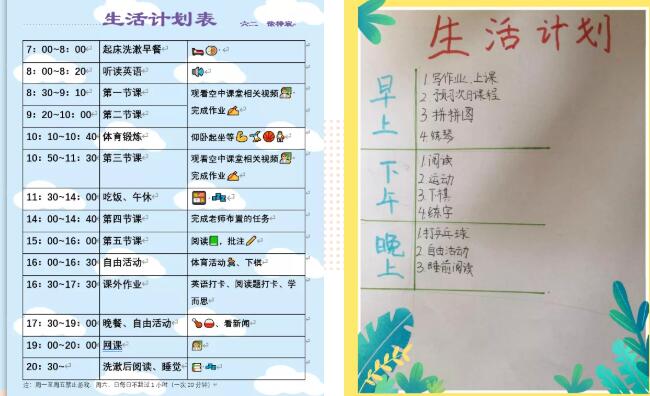 生活计划表
六二
7：00~8：00 起床洗漱早餐
8：00~8：20 听读英语
8：30~9：10 第一节课 观看空中课堂相关视频
完成作业
9：20~10：00 第二节课
10：10~10：40 体育锻炼 仰卧起坐等
10：50~11：30 第三节课 观看空中课堂相关视频
完成作业
11：30~14：00 吃饭、午休
14：00~14：40 第四节课 完成老师布置的任务
15：00~16：00 第五节课 阅读，批注
16：00~16：30 自由活动 体育活动、下棋
16：30~17：30 课外作业 英语打卡、阅读题打卡、学
而思
17：30~19：00 晚餐、自由活动 、看新闻
19：00~20：00 网课
20：30~ 洗漱后阅读、睡觉
注：周一至周五禁止 周六、日每日不超过1小时（一次20分钟）
生活计划
早上
1.写作业、上课
2.预习次日课程
3.拼拼图
4.练琴
下午
1.阅读
2.运动
3.下棋
4.练字
晚上
1.打乒乓球
2.自由活动
3.睡前阅读